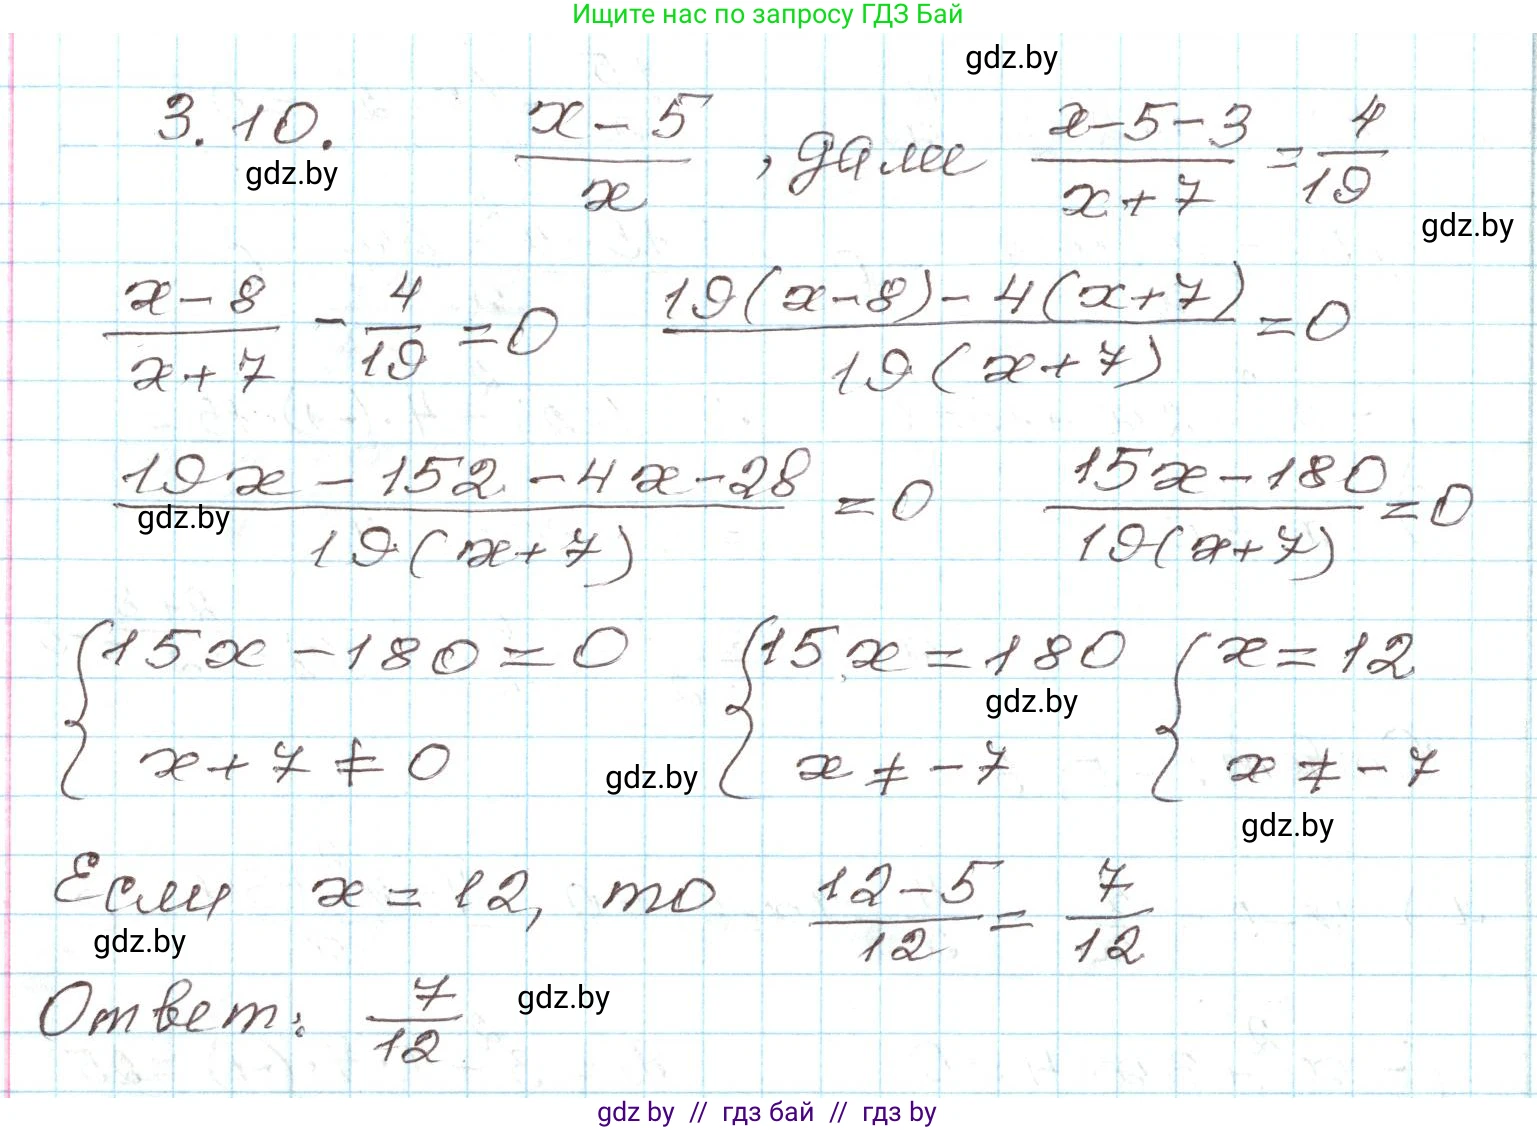 Ищите нас по запросу ГДЗ Бай
gdz.by
3.10. (x-5)/x , дали (x-5-3)/(x+7) = 4/19
gdz.by
gdz.by
(x-8)/(x+7) - 4/19 = 0 (19(x-8)-4(x+7))/(19(x+7)) = 0
(19x-152-4x-28)/(19(x+7)) = 0 (15x-180)/(19(x+7)) = 0
gdz.by
{15x-180=0 {15x=180 {x=12
gdz.by
x+7≠0 x≠-7 x≠-7
gdz.by
gdz.by
Если x=12, то (12-5)/12 = 7/12
gdz.by
Ответ: 7/12
gdz.by
gdz by // гдз бай // гдз by